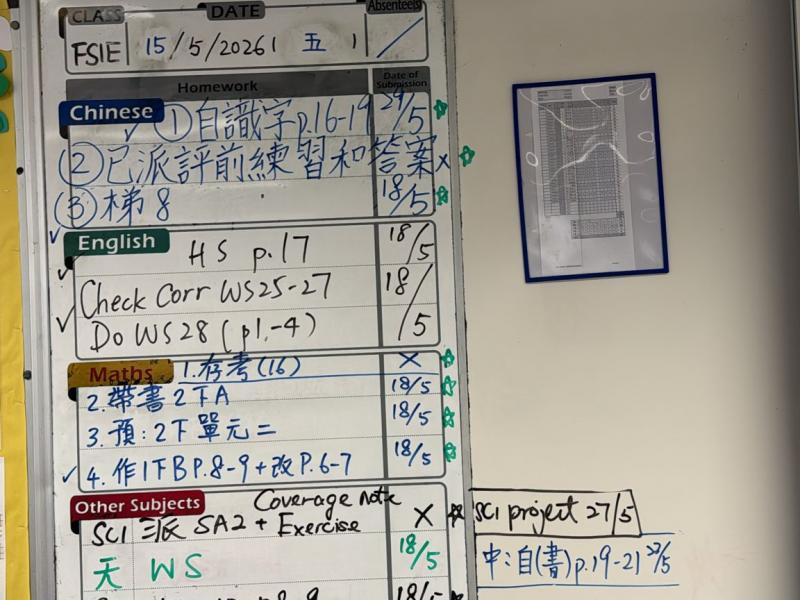 CLASS DATE Absentee(s)
FSIE 15/5/2026(五)
Homework Date of Submission
Chinese ①自識字p.16-19 29/5
②已派評前練習和答案 x
③梯8 18/5
English HS p.17 18/5
Check Corr WS25-27 18/5
Do WS28 (p1.-4)
Maths 1.存考(16) x
2.帶書2下A 18/5
3.預:2下單元二 18/5
4.作1下B P.8-9+改P.6-7 18/5
Other Subjects Coverage note
SCI 派 SA2 + Exercise X
天 WS 18/5
SCI project 27/5
中:自(書)p.19-21